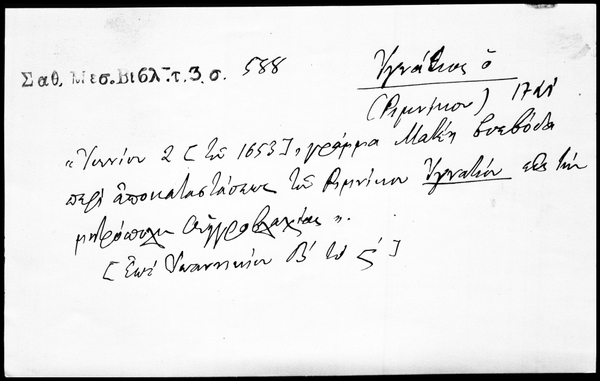 Σαθ. Μεσ. Βιβλ. τ. 3 σ. 588
Ἰγνάτιος ὁ
(Ριμνίκου) 17ος
«Ἰουνίου 2 [τοῦ 1653], γράμμα Ματέη βοεβόδα
περὶ ἀποκαταστάσεως τοῦ Ριμνίκου Ἰγνατίου εἰς τὴν
μητρόπολιν Οὐγγροβλαχίας».
[Ἐπὶ Ἰωαννικίου Β΄ τὸ ς΄]